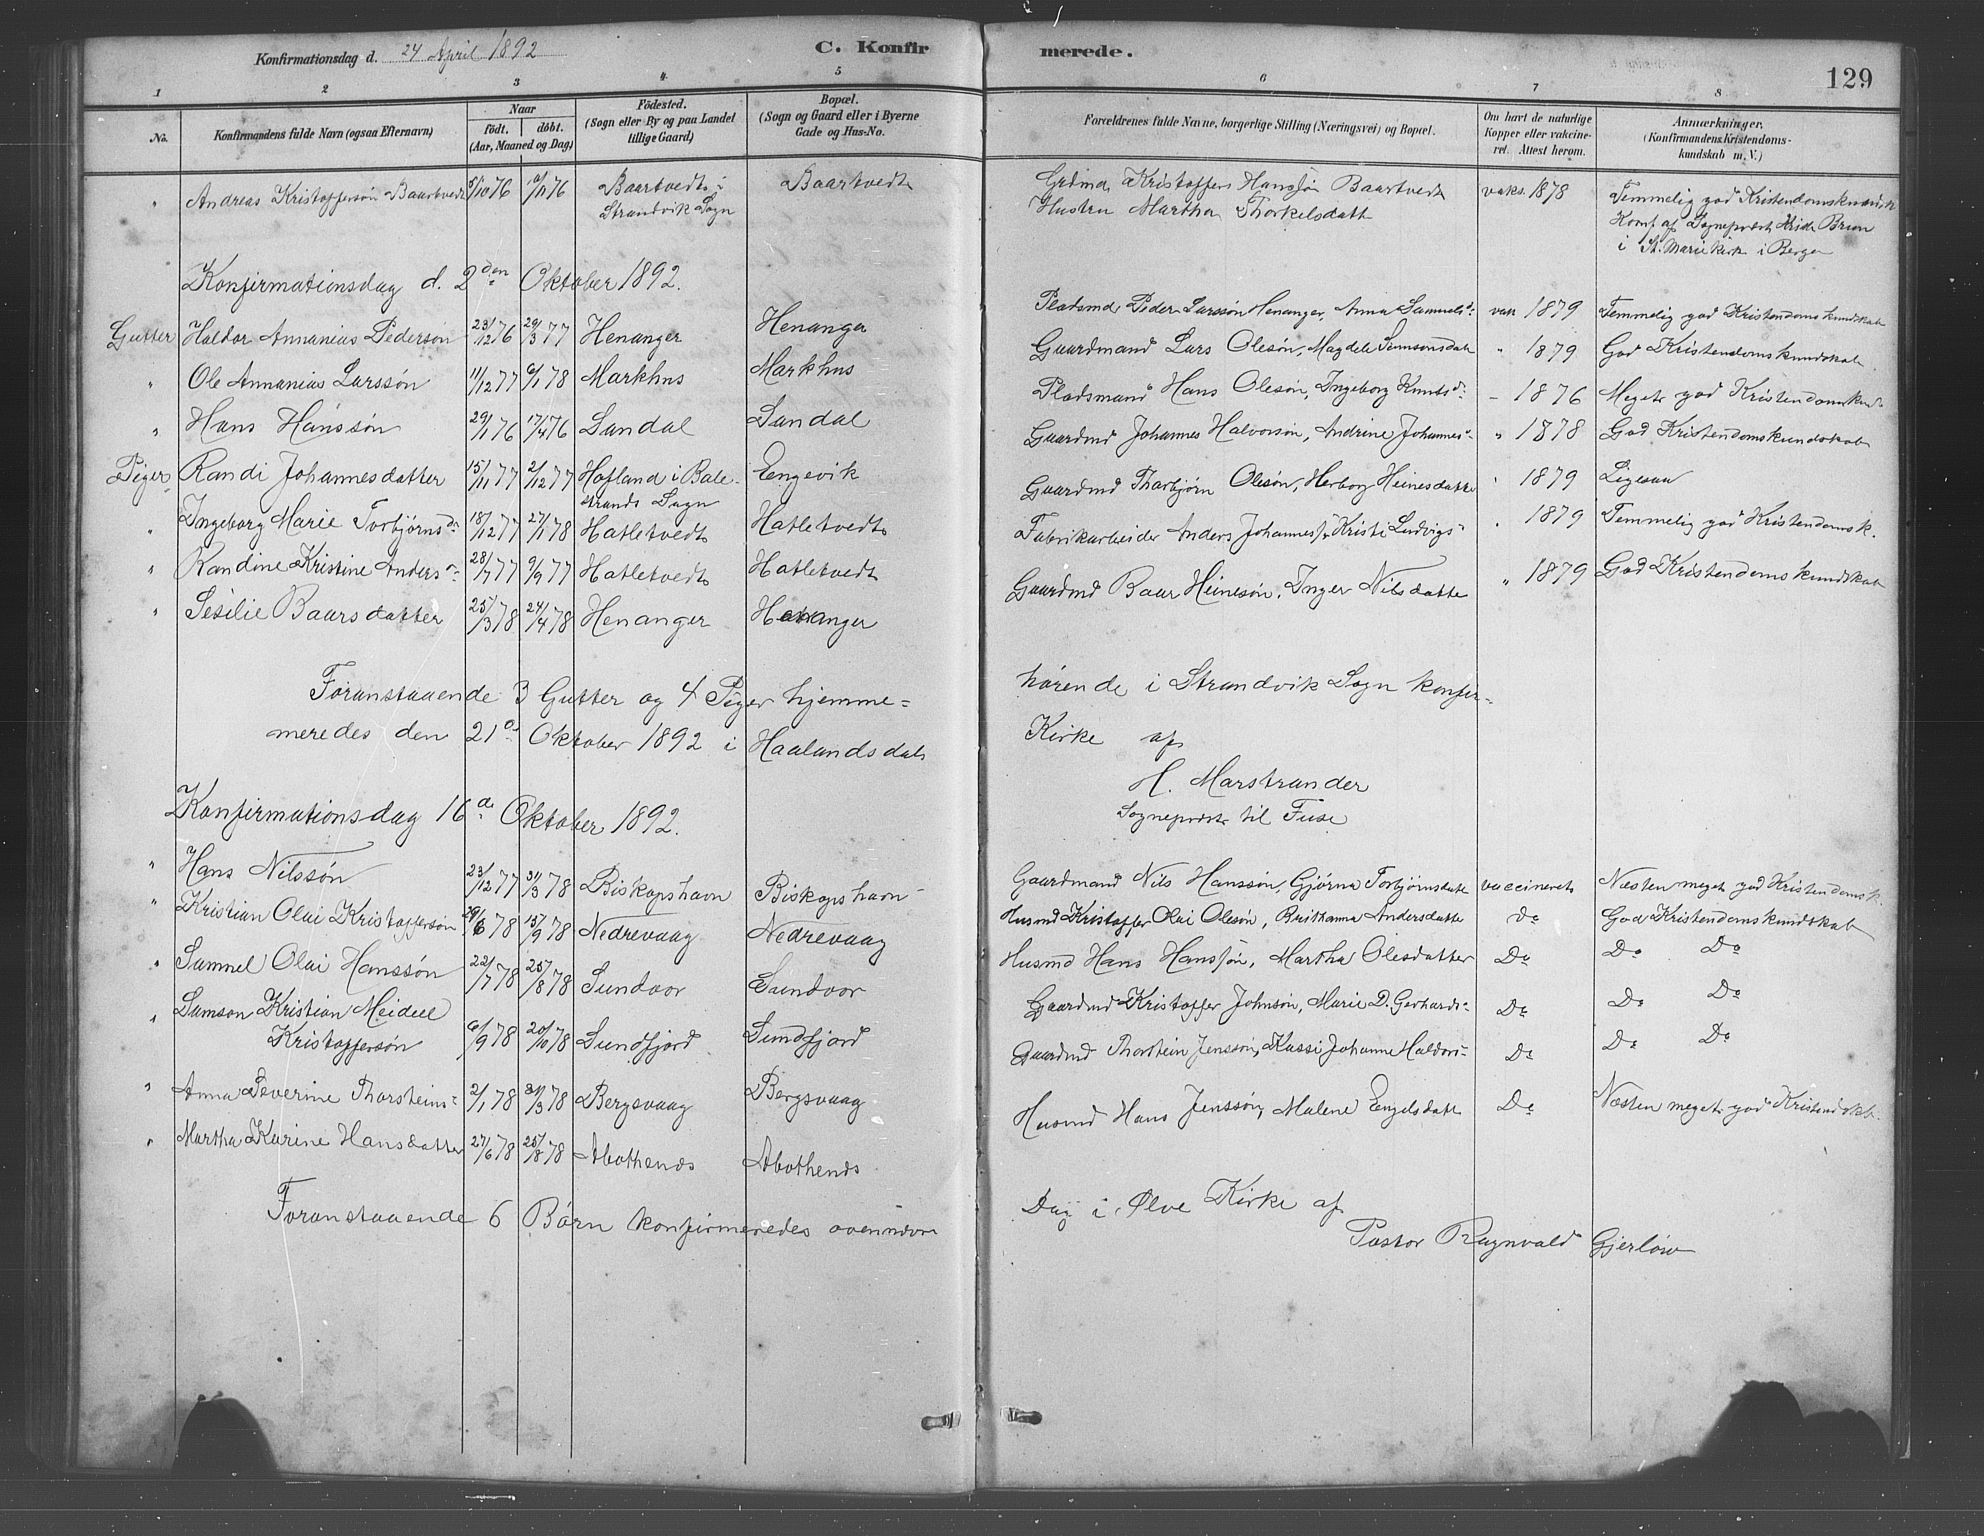 Konfirmationsdag d. 24 April 1892 C. Konfirmerede. 129
1 2 3 4 5 6 7 8
No. Konfirmandens fulde Navn (ogsaa Efternavn) Naar født. døbt. (Aar, Maaned og Dag) Fødested. (Sogn eller By og paa Landet tillige Gaard) Bopæl. (Sogn og Gaard eller i Byerne Gade og Hus-No. Forældrenes fulde Navne, borgerlige Stilling (Næringsvei) og Bopæl. Om havt de naturlige Kopper eller vakcineret. Attest herom. Anmærkninger. (Konfirmandens Kristendomskundskab m. V.)
" Andreas Kristoffersøn Baartvedt 76 76 Baartvedt i Strandvik Sogn Baartvedt Kristoffer Hanssøn Baartvedt Hustru Martha Thorkelsdatt vaks. 1878 Temmelig god Kristendomskundsk Konf. af Sognepræst Brun i St. Mariekirke i Bergen
Konfirmationsdag d. 2den Oktober 1892.
Gutter Haldor Annanias Pedersøn 23/12 76 29/3 77 Henanger Henanger Pladsmd Peder Larssøn Henanger, Anna Samuelsd: vak 1879 Temmelig god Kristendomskundskab
" Ole Annanias Larssøn 11/12 77 6/1 78 Markhus Markhus Gaardmand Lars Olesøn, Magdela Samsonsdatt " 1879 God Kristendomskundskab
" Hans Hanssøn 29/1 76 17/4 76 Sandal Sandal Pladsmand Hans Olesøn, Ingeborg Knutsd: " 1876 Meget god Kristendomskund
Piger Randi Johannesdatter 15/11 77 2/12 77 Hafland i Balestrands Sogn Eengevik Gaardmd Johannes Halvorsøn, Andrine Johannes " 1878 God Kristendomskundskab
" Ingeborg Marie Torbjørnsdr 18/12 77 27/1 78 Hatletvedt Hatletvedt Gaardmd Thorbjørn Olesøn, Herborg Heinesdatte " 1879 Ligesaa
" Randine Kristine Anders 28/7 77 9/9 77 Hatletvedt Hatletvedt Fabrikarbeider Anders Johannes, Kristi Ludvigs " 1879 Temmelig god Kristendomsk.
" Sesilie Baarsdatter 25/3 78 24/4 78 Henanger Henanger Gaardmd Baar Heinesøn, Inger Nilsdatte " 1879 God Kristendomskundskab
Foranstaaende 3 Gutter og 4 Piger hjemmehørende i Strandvik Sogn konfirmeredes den 2den Oktober 1892 i Haalandsdals Kirke af
H. Marstrander
Sognepræst til Fuse
Konfirmationsdag 16de Oktober 1892.
" Hans Nilssøn 23/12 77 31/3 78 Biskopshavn Biskopshavn Gaardmand Nils Hanssøn, Gjørna Torbjørnsdatt vaccineret Næsten meget god Kristendomsk.
" Kristian Olai Kristoffersøn 29/6 78 15/9 78 Nedrevaag Nedrevaag Husmd Kristoffer Olai Olesøn, Brithanna Andersdatte Do God Kristendomskundskab
" Samuel Olai Hanssøn 22/7 78 25/8 78 Sundvor Sundvor Husmd Hans Hanssøn, Martha Olesdatter Do Do Do
" Samson Kristian Meidell Kristoffersøn 6/9 78 20/10 78 Sundfjord Sundfjord Gaardmd Kristoffer Johnsøn, Marie D. Gerhards Do Do Do
" Anna Severine Thorsteins 2/1 78 31/3 78 Bergsvaag Bergsvaag Gaardmd Thorstein Jenssøn, Kassi Johanne Haldors Do Do Do
" Martha Karine Hansdatter 27/6 78 25/8 78 Abothenes Abothenes Husmd Hans Jenssøn, Malene Engelsdatt Do Næsten meget god Kristendskb.
Foranstaaende 6 Børn konfirmeredes ovennævn Dag i Ølve Kirke af
Pastor Ragnvald Gjerløw